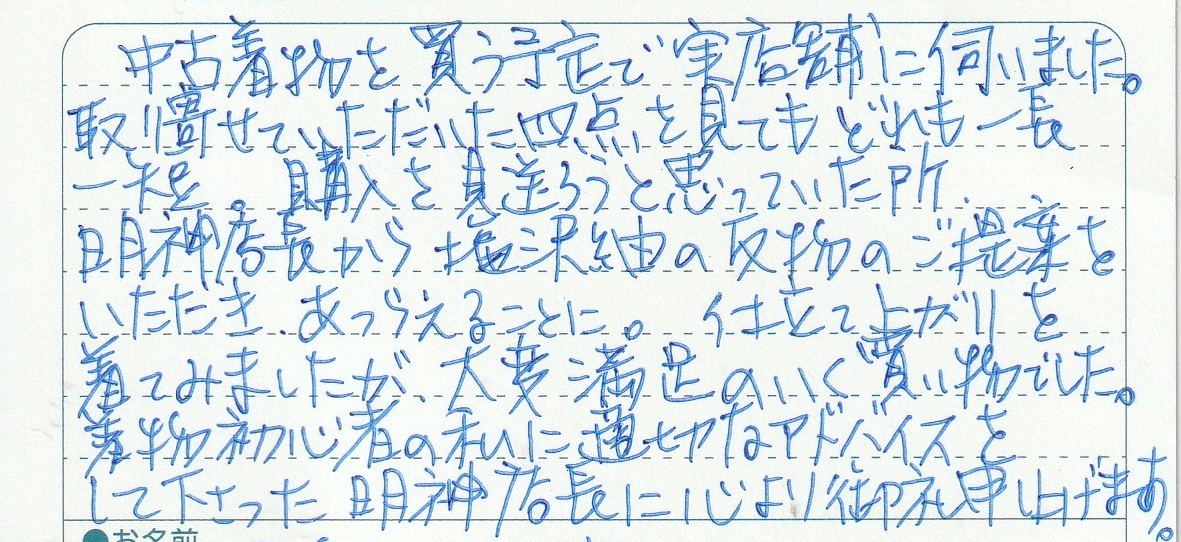 中古着物を買う予定で実店舗に伺いました。
取り寄せていただいた四点を見てもどれも一長
一短。購入を見送ろうと思っていた所、
明神店長から塩沢紬の反物のご提案を
いただき、あつらえることに。仕立て上がりを
着てみましたが、大変満足のいく買い物でした。
着物初心者の私に適切なアドバイスを
して下さった明神店長に心より御礼申し上げます。
●お名前